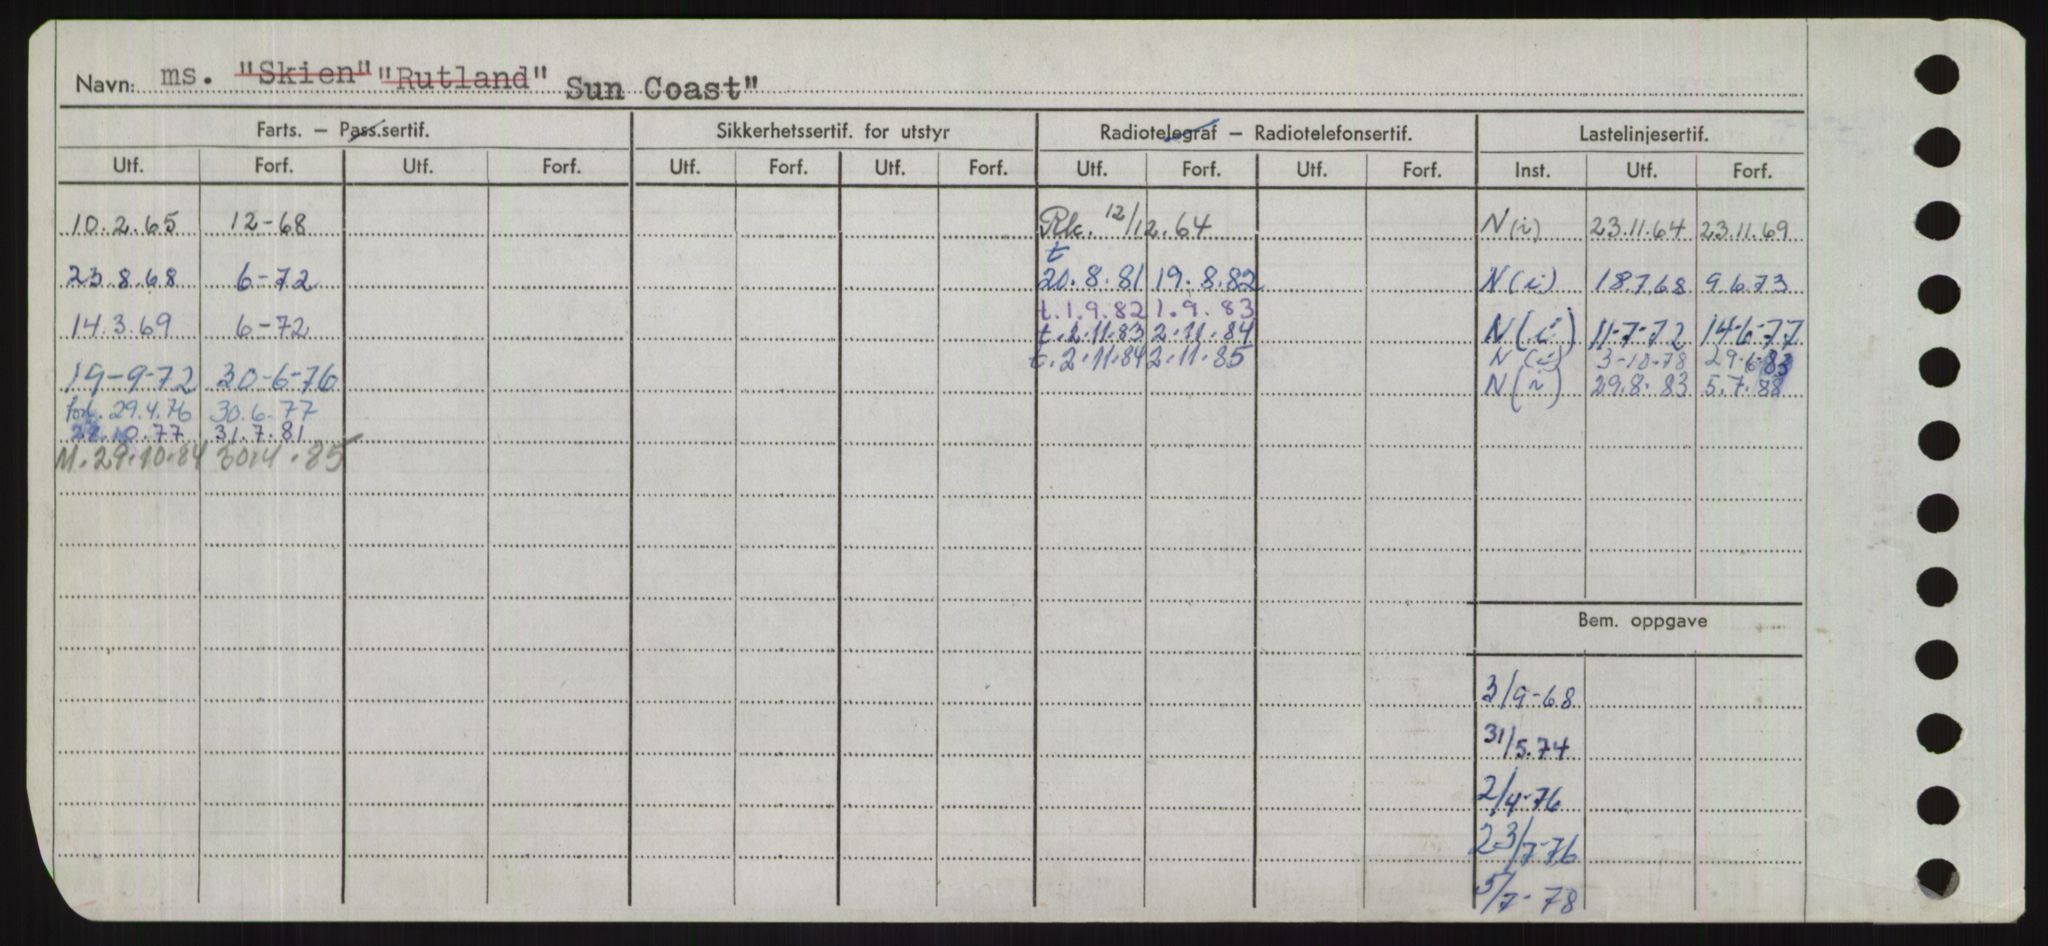 Navn: ms. "Skien" "Rutland" Sun Coast"
Farts. – Pass.sertif. Sikkerhetssertif. for utstyr Radiotelegraf – Radiotelefonsertif. Lastelinjesertif.
Utf. Forf. Utf. Forf. Utf. Forf. Utf. Forf. Utf. Forf. Utf. Forf. Inst. Utf. Forf.
10.2.65 12-68 Rk. 12/12.64 N(i) 23.11.64 23.11.69
t
23.8.68 6-72 20.8.81 19.8.82 N(i) 18.7.68 9.6.73
t.1.9.82 1.9.83
14.3.69 6-72 t.2.11.83 2.11.84 N(i) 11-7-72 14-6-77
t.2.11.84 2.11.85 N(i) 3-10-78 29-6-83
19-9-72 30-6-76 N(i) 29.8.83 5.7.88
forl. 29.4.76 30.6.77
10.77 31.7.81
M.29.10.84 30.4.85
Bem. oppgave
3/9-68
31/5.74
2/4-76
23/7-76
5/7-78